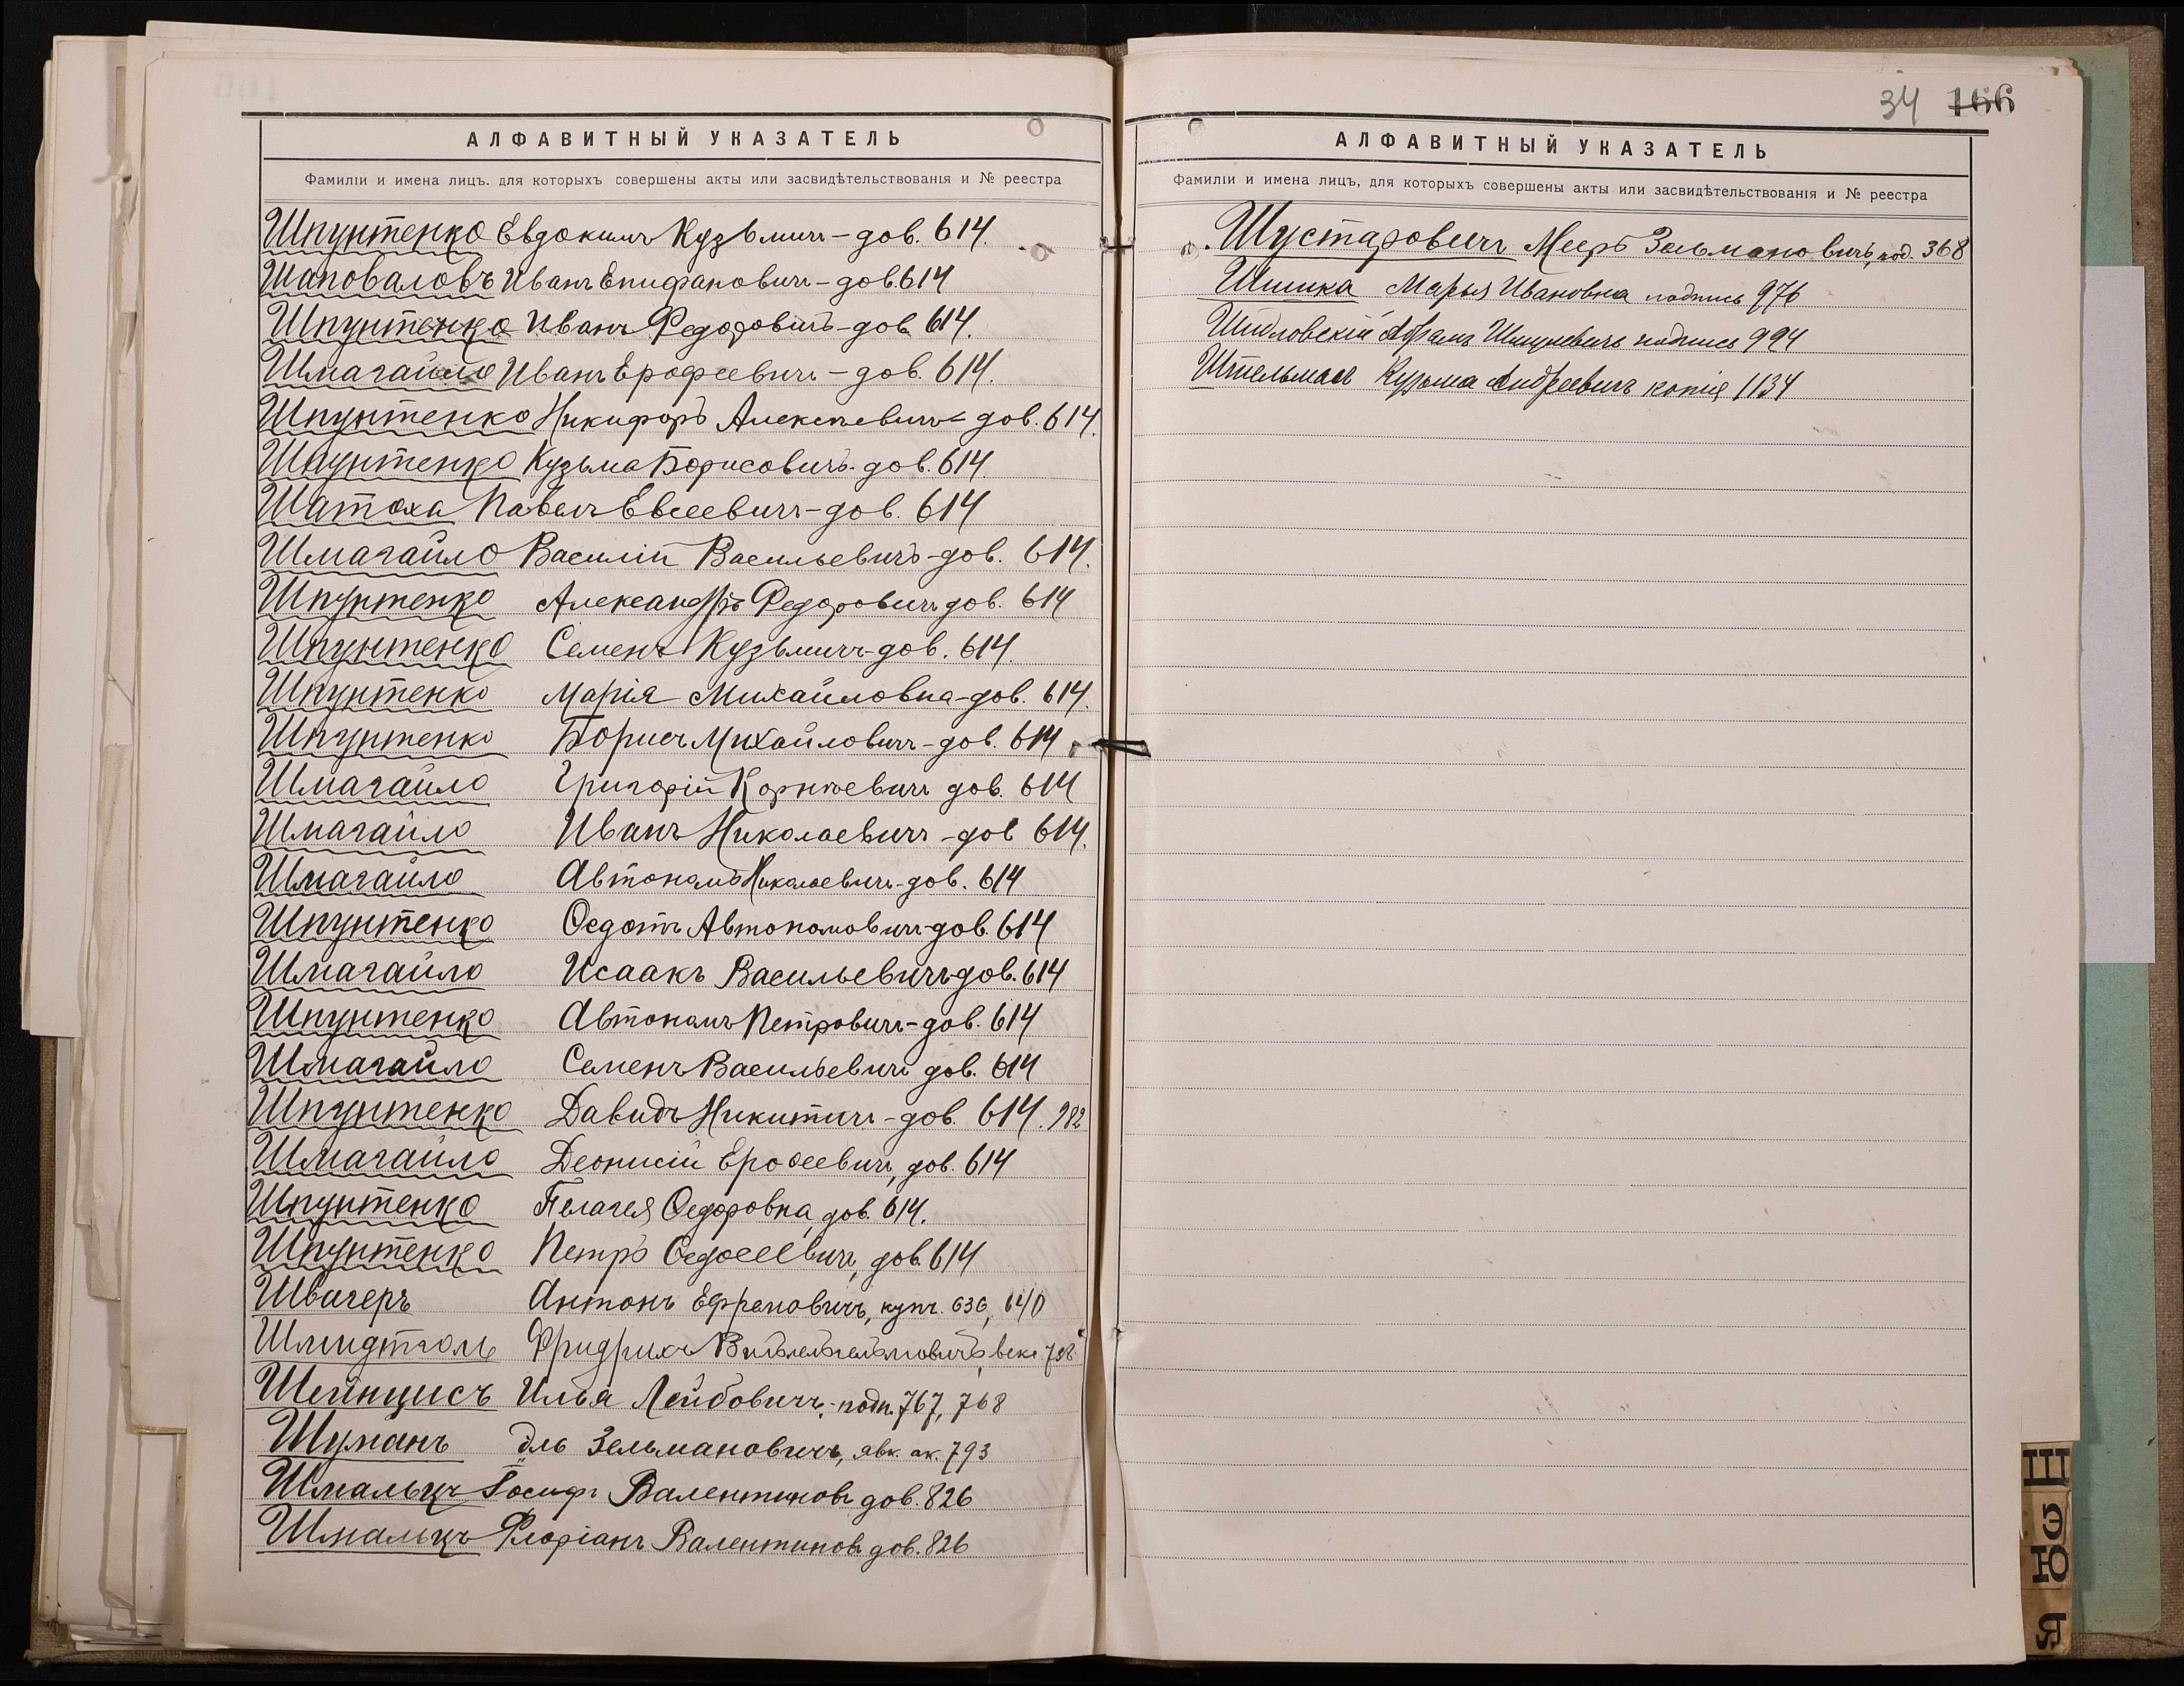 АЛФАВИТНЫЙ УКАЗАТЕЛЬ
Фамиліи и имена лицъ, для которыхъ совершены акты или засвидѣтельствованія и № реестра
Шпунтенко Евдокимъ Кузьмичъ - дов. 614.
Шаповаловъ Иванъ Епифановичъ - дов. 614
Шпунтенко Иванъ Федоровичъ - дов. 614.
Шмагайло Иванъ Ерофеевичъ - дов. 614.
Шпунтенко Никифоръ Алексѣевичъ - дов. 614.
Шпунтенко Кузьма Борисовичъ - дов. 614
Шатоха Павелъ Евсеевичъ - дов. 614
Шмагайло Василій Васильевичъ - дов. 614.
Шпунтенко Александръ Федоровичъ дов. 614
Шпунтенко Семенъ Кузьмичъ - дов. 614.
Шпунтенко Марія Михайловна - дов. 614.
Шпунтенко Борисъ Михайловичъ - дов. 614
Шмагайло Григорій Корнѣевичъ дов. 614
Шмагайло Иванъ Николаевичъ - дов 614.
Шмагайло Автономъ Николаевичъ - дов. 614
Шпунтенко Ѳедотъ Автономовичъ - дов. 614
Шмагайло Исаакъ Васильевичъ - дов. 614
Шпунтенко Автономъ Петровичъ - дов. 614
Шмагайло Семенъ Васильевичъ дов. 614
Шпунтенко Давидъ Никитичъ - дов. 614. 982
Шмагайло Деонисій Ероѳеевичъ, дов. 614
Шпунтенко Пелагея Ѳедоровна, дов. 614.
Шпунтенко Петръ Ѳедосеевичъ, дов. 614
Швагеръ Антонъ Ефремовичъ, купч. 636, 640
Шмидтголь Фридрихъ векс
Шейнцисъ Илья Лейбовичъ, - подп. 767, 768
Шуманъ Эль Зельмановичъ, явк. ак. 793
Шмальцъ Іосифъ Валентиновъ дов. 826
Шмальцъ Флоріанъ Валентиновъ дов. 826
34 166
АЛФАВИТНЫЙ УКАЗАТЕЛЬ
Фамиліи и имена лицъ, для которыхъ совершены акты или засвидѣтельствованія и № реестра
Шустаровичъ Мееръ Зельмановичъ, под. 368
Шишка Марья Ивановна подпись 976
Шидловскій Абрамъ подпись 994
Штельмах Кузьма Андреевичъ копія 1134
Щ
Э
Ю
Я